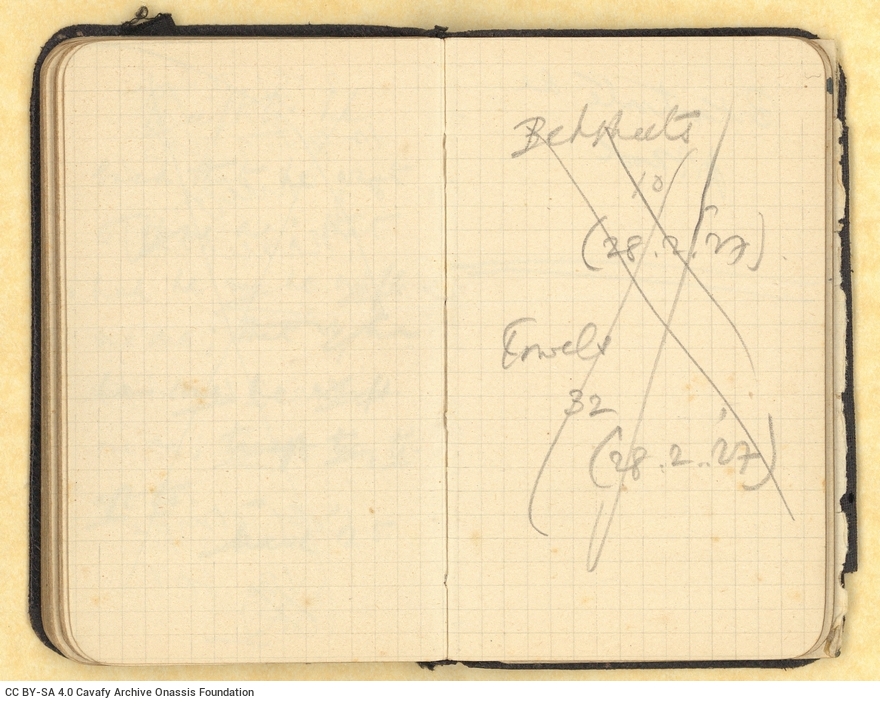 Bedsheets
10
(28.2.'27)
Towels
32
(28.2.'27)
CC BY-SA 4.0 Cavafy Archive Onassis Foundation